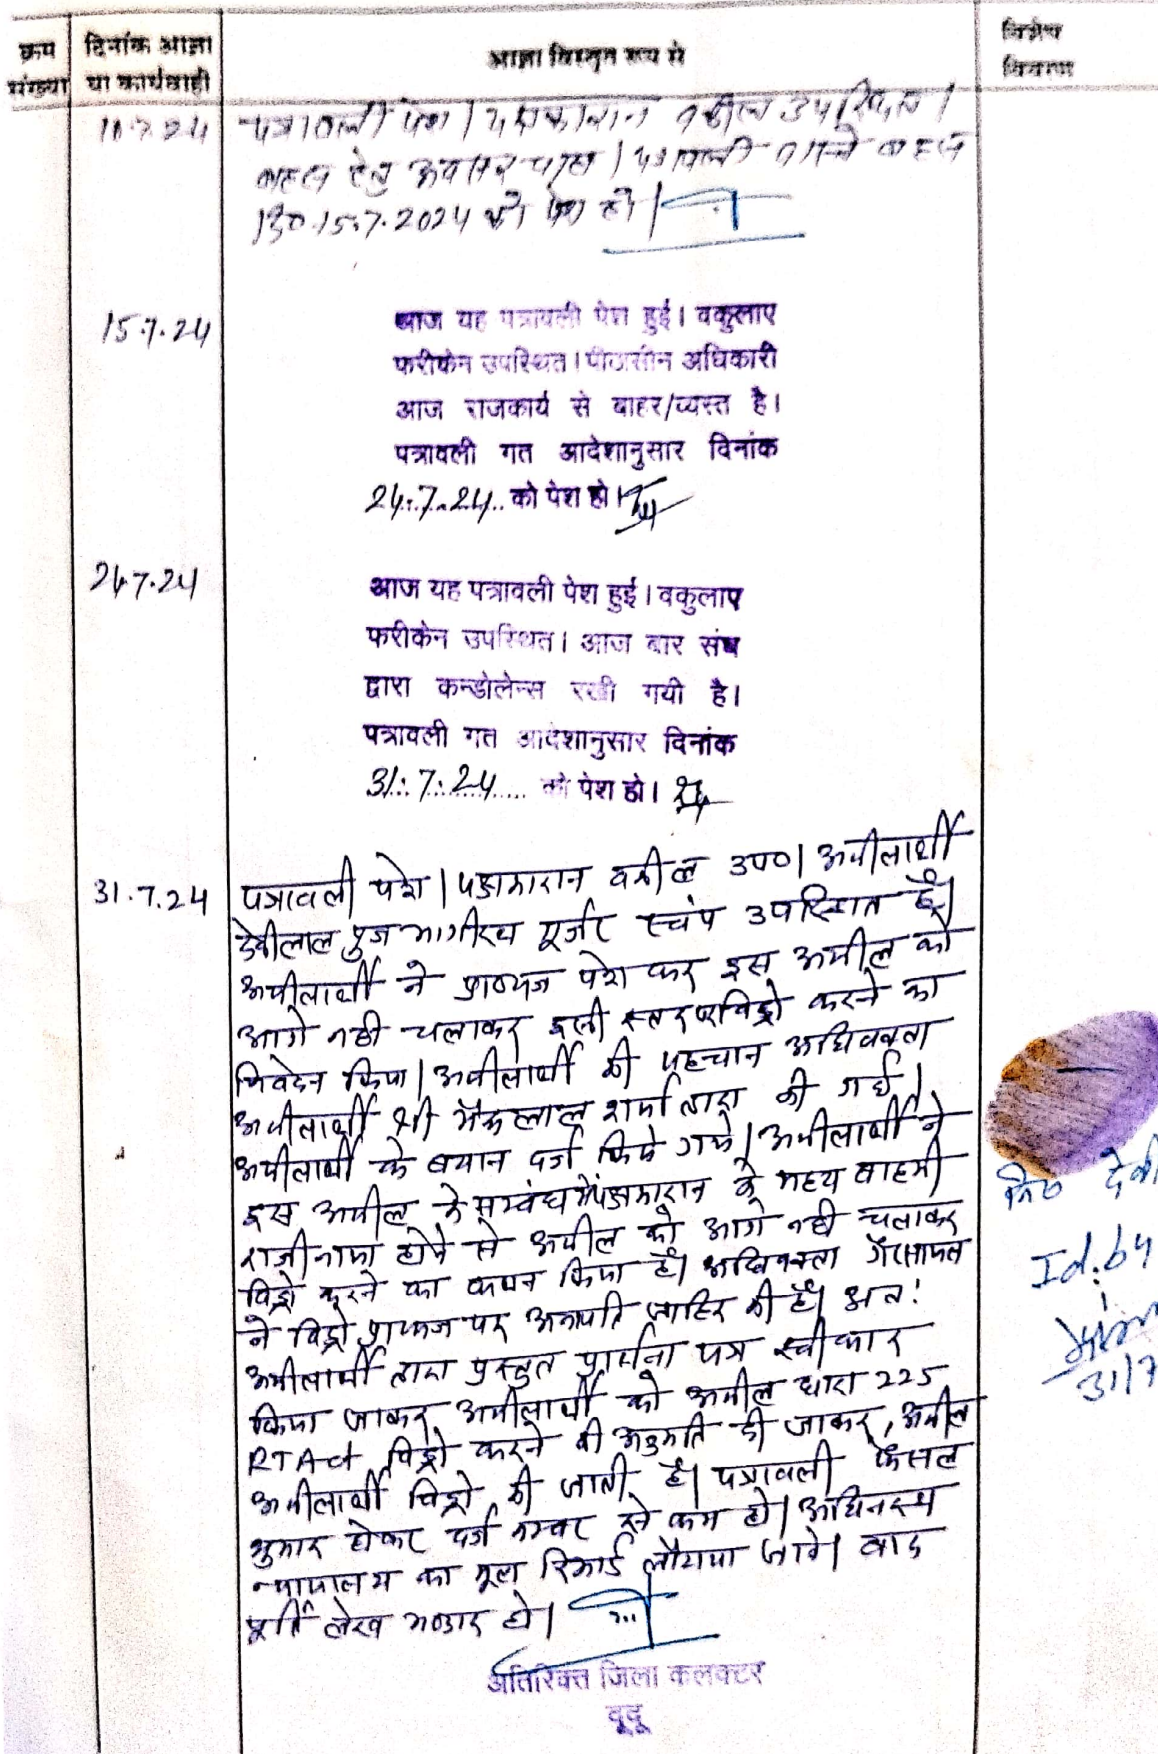 क्रम संख्या
दिनांक आज्ञा या कार्यवाही
आज्ञा विस्तृत रूप से
विशेष विवरण
10.7.24
पत्रावली पेश। पक्षकारान वकील उपस्थित।
बहस हेतु अवसर चाहा। पत्रावली वास्ते बहस
दि० 15.7.2024 को पेश हो।
15.7.24
आज यह पत्रावली पेश हुई। वकुलाए
फरीकेन उपस्थित। पीठासीन अधिकारी
आज राजकार्य से बाहर/व्यस्त है।
पत्रावली गत आदेशानुसार दिनांक
24.7.24 को पेश हो।
24.7.24
आज यह पत्रावली पेश हुई। वकुलाए
फरीकेन उपस्थित। आज बार संघ
द्वारा कन्डोलेन्स रखी गयी है।
पत्रावली गत आदेशानुसार दिनांक
31.7.24 को पेश हो।
31.7.24
पत्रावली पेश। पक्षकारान वकील उप०। अपीलार्थी
देवीलाल पुत्र भागीरथ गूर्जर स्वंय उपस्थित है।
अपीलार्थी ने प्रा०पत्र पेश कर इस अपील को
आगे नही चलाकर इसी स्तर पर विड्रो करने का
निवेदन किया। अपीलार्थी की पहचान अधिवक्ता
अपीलार्थी श्री भैरूलाल शर्मा द्वारा की गई।
अपीलार्थी के बयान दर्ज किये गये। अपीलार्थी ने
इस अपील के सम्बंध में पक्षकारान के मध्य बाहमी
राजीनामा होने से अपील को आगे नही चलाकर
विड्रो करने का कथन किया है। अधिवक्ता गैरसायल
ने विड्रो प्रा०पत्र पर अनापति जाहिर की है। अतः
अपीलार्थी द्वारा प्रस्तुत प्रार्थना पत्र स्वीकार
किया जाकर अपीलार्थी को अपील धारा 225
RTAct विड्रो करने की अनुमति दी जाकर, अपील
अपीलार्थी विड्रो की जाती है। पत्रावली फैसल
शुमार होकर दर्ज नम्बर से कम हो। अधिनस्थ
न्यायालय का मूल रिकार्ड लौटाया जावे। बाद
पूर्ति लेख भण्डार हो।
नि० देवी
Id. by
31/7
अतिरिक्त जिला कलक्टर
दूदू